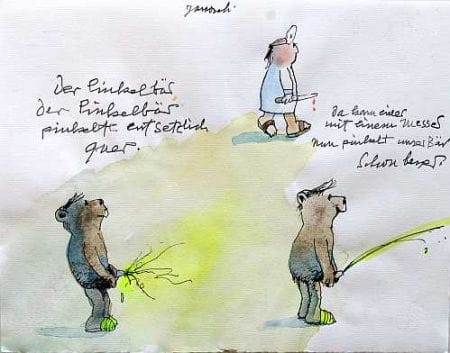 janosch
Der Pinkelbär
der Pinkelbär
pinkelt entsetzlich
quer.
Da kam einer
mit einem Messer
nun pinkelt unser Bär
schon besser.